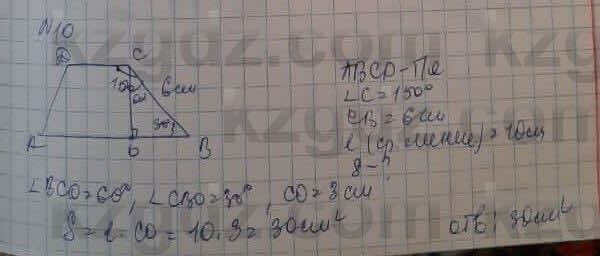 №10
D C
150°
60°
6см
30°
A O B
ABCD-
∠C=150°
CB=6см
l (ср линия)=10см
S-?
∠BCO=60°, ∠CBO=30°, CO=3см
S=l·CO=10·3=30см²
отв: 30см²
kzgdz.com